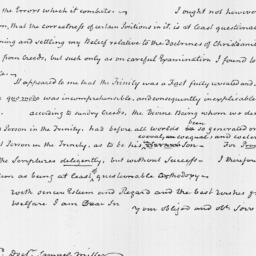 the Errors which it combats.— I ought not however
ion, that the correctness of certain Positions in it, is at least questionab
ning and settling my Belief relative to the Doctrines of Christianit
from Creeds, but such only as on careful Examination I found to
It appeared to me that the Trinity was a Fact fully revealed and
quo modo was incomprehensible, and consequently inexplicable
according to sundry Creeds, the Divine Being whom we des
Person in the Trinity, had before all worlds been so generated or
coeval, coequal, and
Person in the Trinity, as to be his Son— For
the Scriptures diligently, but without Success— I therefore
as being at least of questionable Orthodoxy—
With Sincere Esteem and Regard and the best wishes f
Welfare I am Dear Sir
Your Obliged and Ob. Serv
Revd. Doct. Samuel Miller